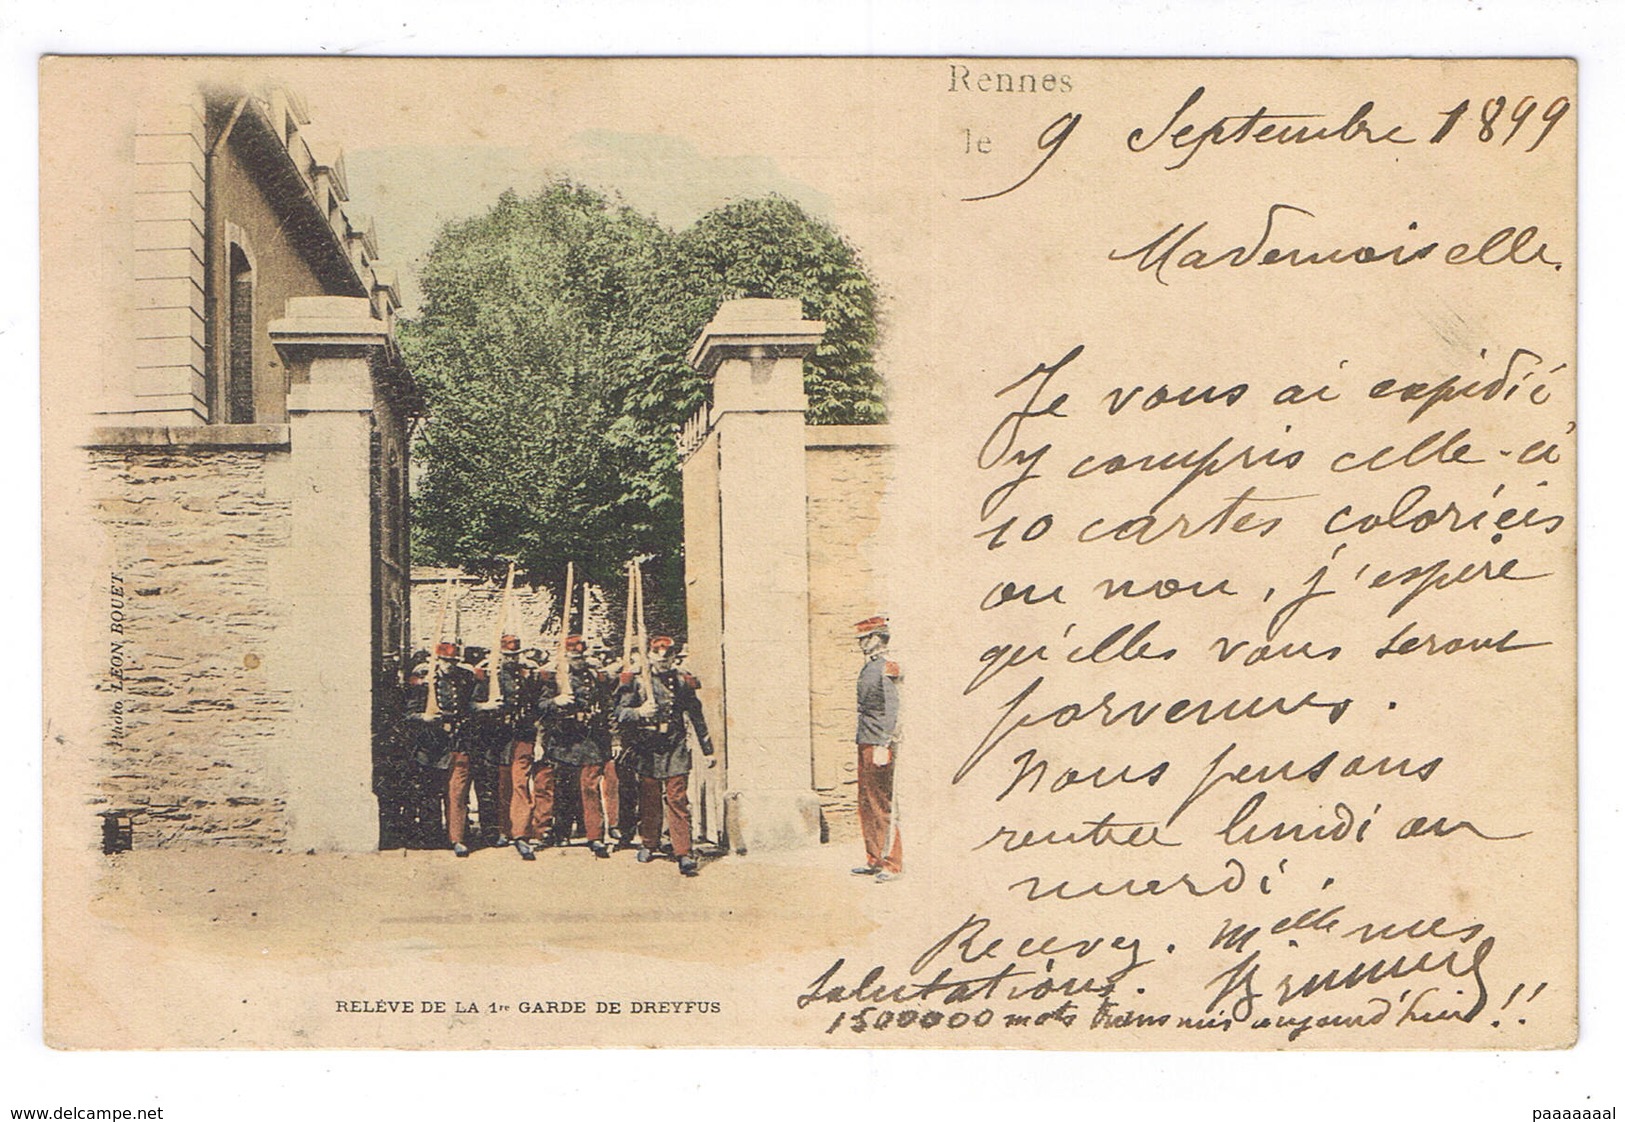 Rennes
le 9 Septembre 1899
Mademoiselle.
Je vous ai expidié
y compris celle-ci
10 cartes coloriéeis
ou non, j'espère
qu'elles vous seront
parvenues.
Nous pensons
rentrer lundi ou
mardi.
Recevez. Melle mes
Salutations.
1500000 mots transmis aujourd'hui!!
Photo LEON BOUET
RELÉVE DE LA 1re GARDE DE DREYFUS
www.delcampe.net
paaaaaaal